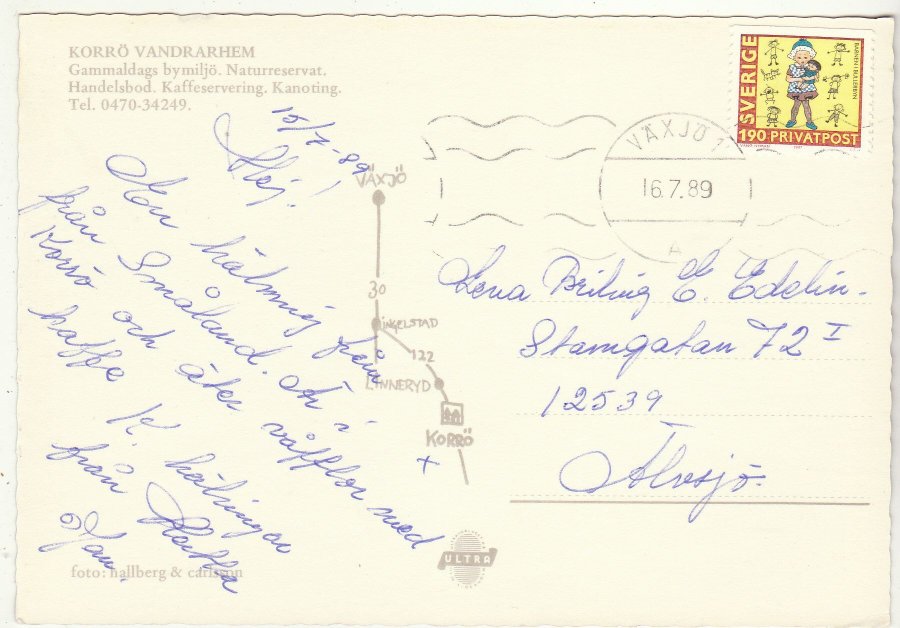 KORRÖ VANDRARHEM
Gammaldags bymiljö. Naturreservat.
Handelsbod. Kaffeservering. Kanoting.
Tel. 0470-34249.
15/7-89
Hej!
En hälsning från
Småland. Är i
Korrö och äter våfflor med
kaffe
K. hälsningar
från
Jan.
VÄXJÖ
30
INGELSTAD
122
LINNERYD
KORRÖ
+
ULTRA
foto: hallberg & carlsson
SVERIGE
BARNEN I BULLERBYN
190 PRIVATPOST
VÄXJÖ 1
16.7.89
A
Lena Briling E. Edelin.
Stamgatan 72 I
12539
Älvsjö.